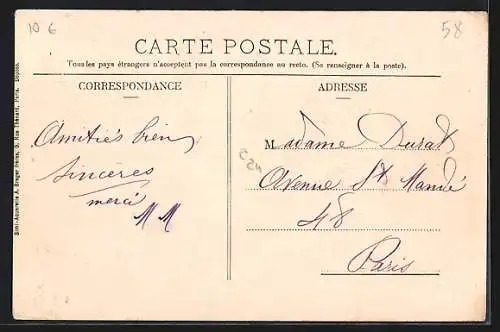 10 6
58
CARTE POSTALE.
Tous les pays étrangers n'acceptent pas la correspondance au recto. (Se renseigner à la poste).
CORRESPONDANCE
ADRESSE
Amitiés bien
sincères
merci
M M
Madame Durat
Avenue St Mandé
48
Paris